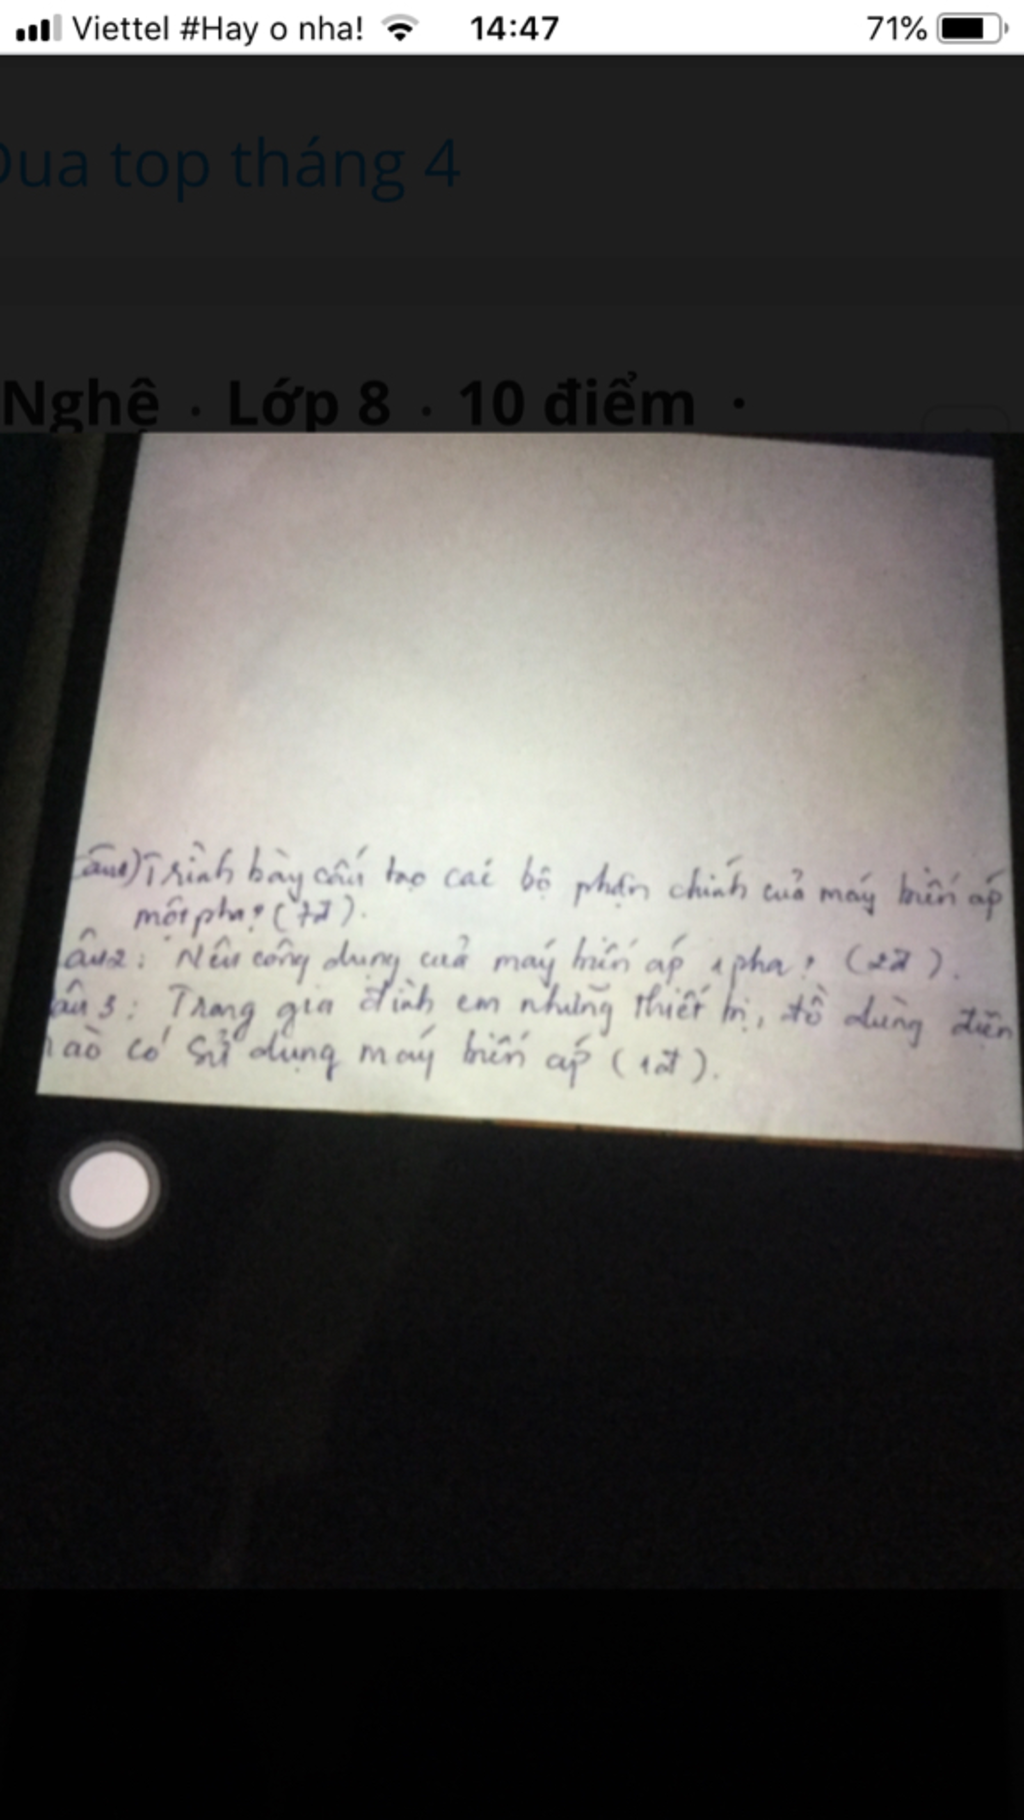 Viettel #Hay o nha! 14:47 71%
Đua top tháng 4
Nghệ · Lớp 8 · 10 điểm ·
Trình bày cấu tạo các bộ phận chính của máy biến áp
một pha? (7đ).
âu2: Nêu công dụng của máy biến áp 1 pha? (2đ).
âu 3: Trong gia đình em những thiết bị, đồ dùng điện
nào có sử dụng máy biến áp (1đ).